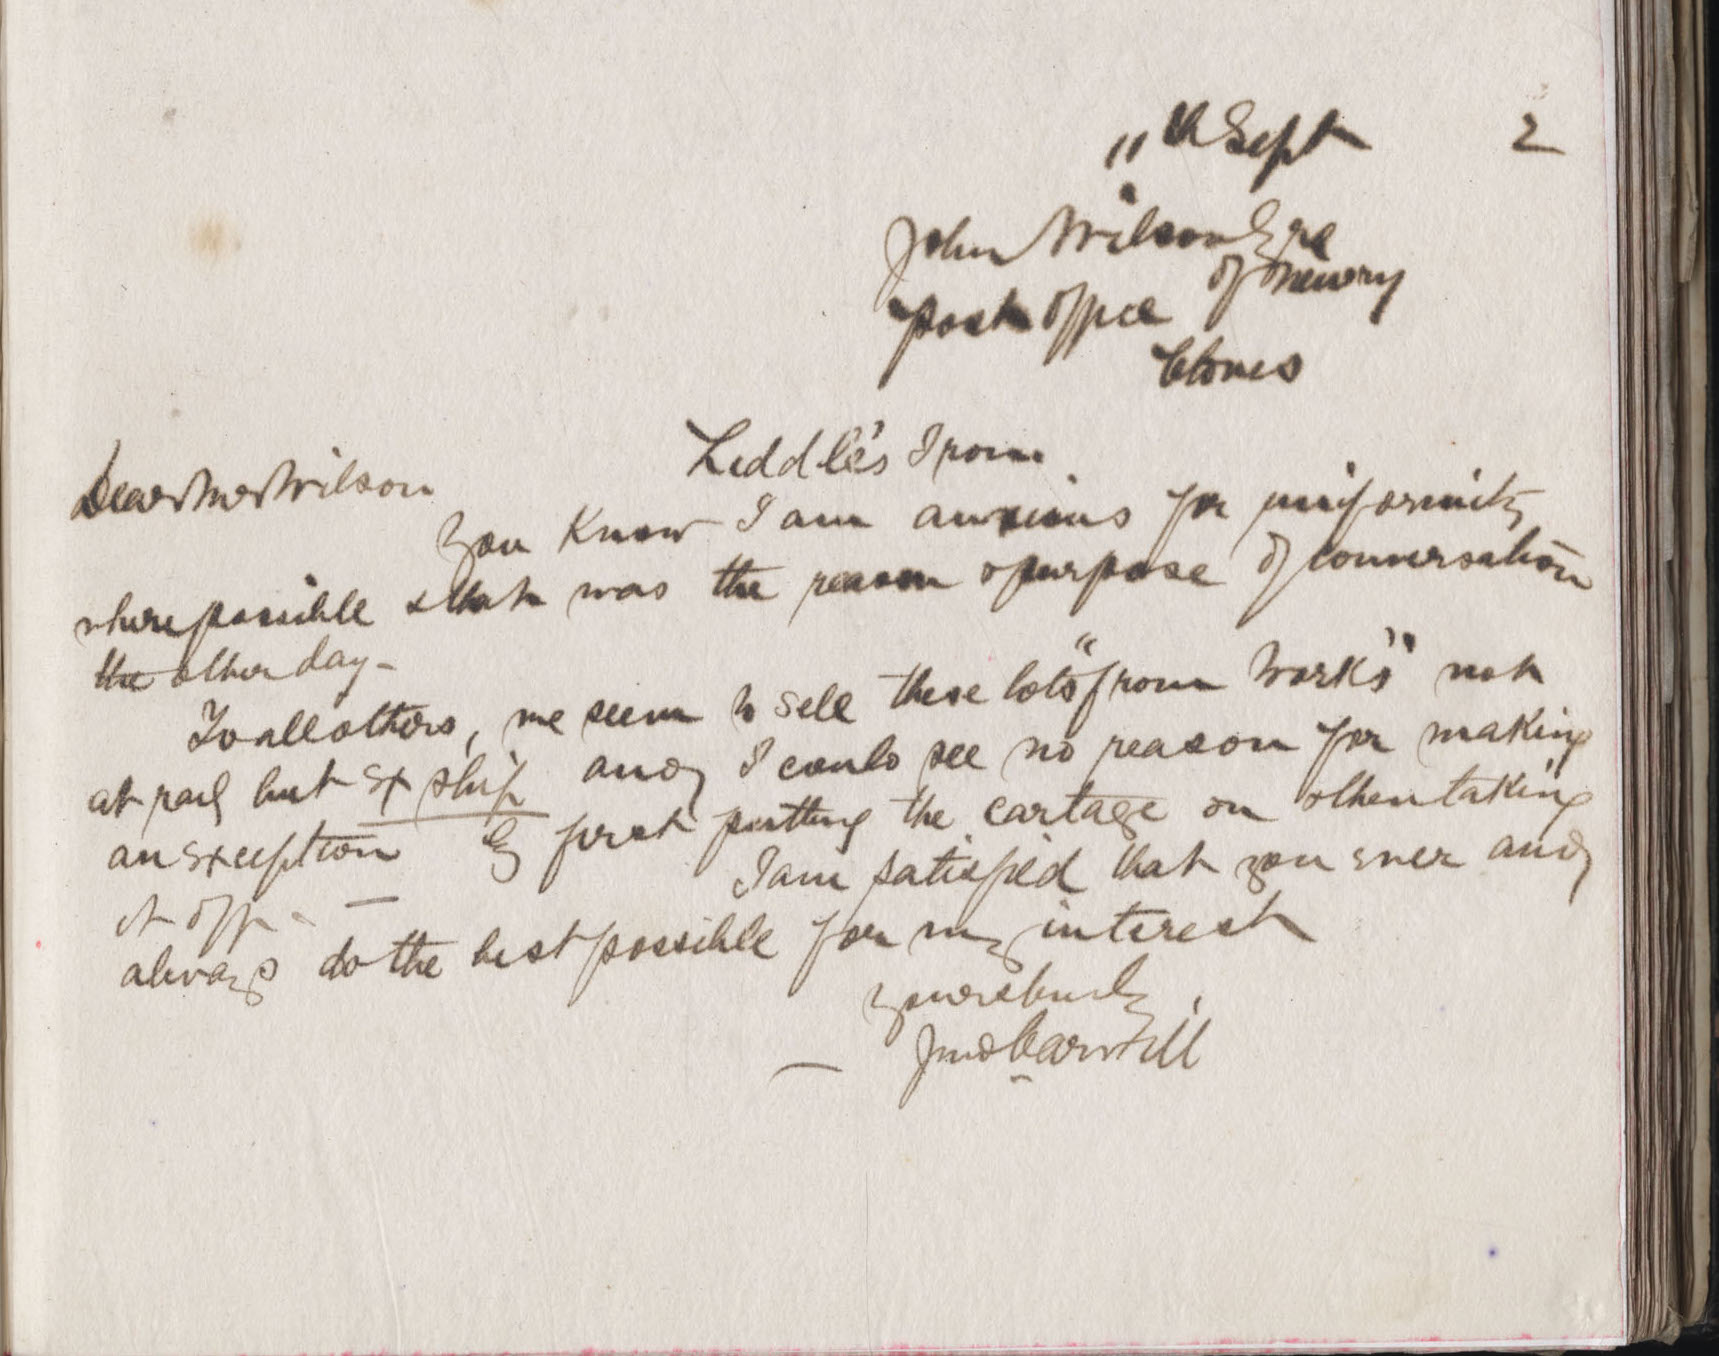 11th Sept 2
John Wilson Esqre
of Newry
Post Office
Clones
Liddle's Iron
Dear Mr Wilson
You Know I am anxious for uniformity
where possible & that was the reason & purpose of conversation
the other day -
To all others, we seem to sell these lots "from Works" not
at rail but Ex ship and I could see no reason for making
an Exception by first putting the cartage on & then taking
it off -
I am satisfied that you ever and
always do the best possible for my interest
Yours truly
Jno Carvill